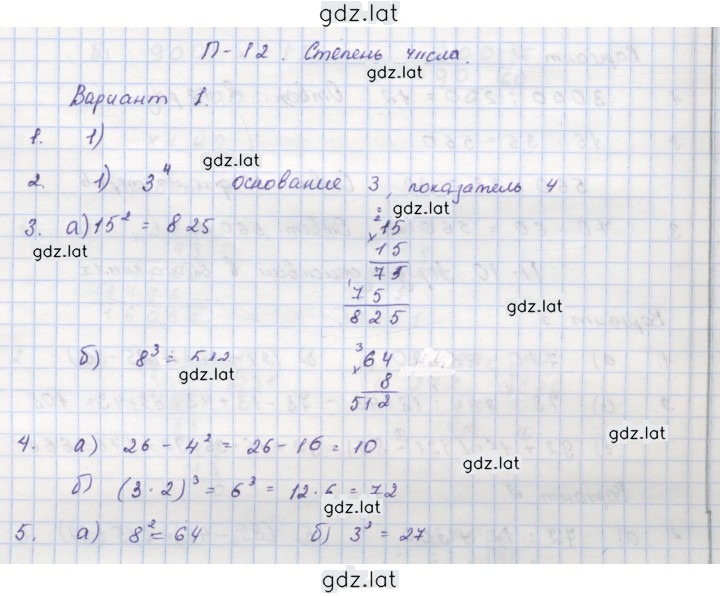 gdz.lat
П-12. Степень числа.
gdz.lat
Вариант 1.
1. 1)
gdz.lat
2. 1) 3⁴ основание 3, показатель 4
gdz.lat
3. а) 15² = 825
gdz.lat
2
2
15
× 15
75
1
75
825
gdz.lat
б) 8³ = 512
gdz.lat
3
64
× 8
512
gdz.lat
4. а) 26 - 4² = 26 - 16 = 10
gdz.lat
б) (3 · 2)³ = 6³ = 12 · 6 = 72
gdz.lat
5. а) 8² = 64 б) 3³ = 27
gdz.lat